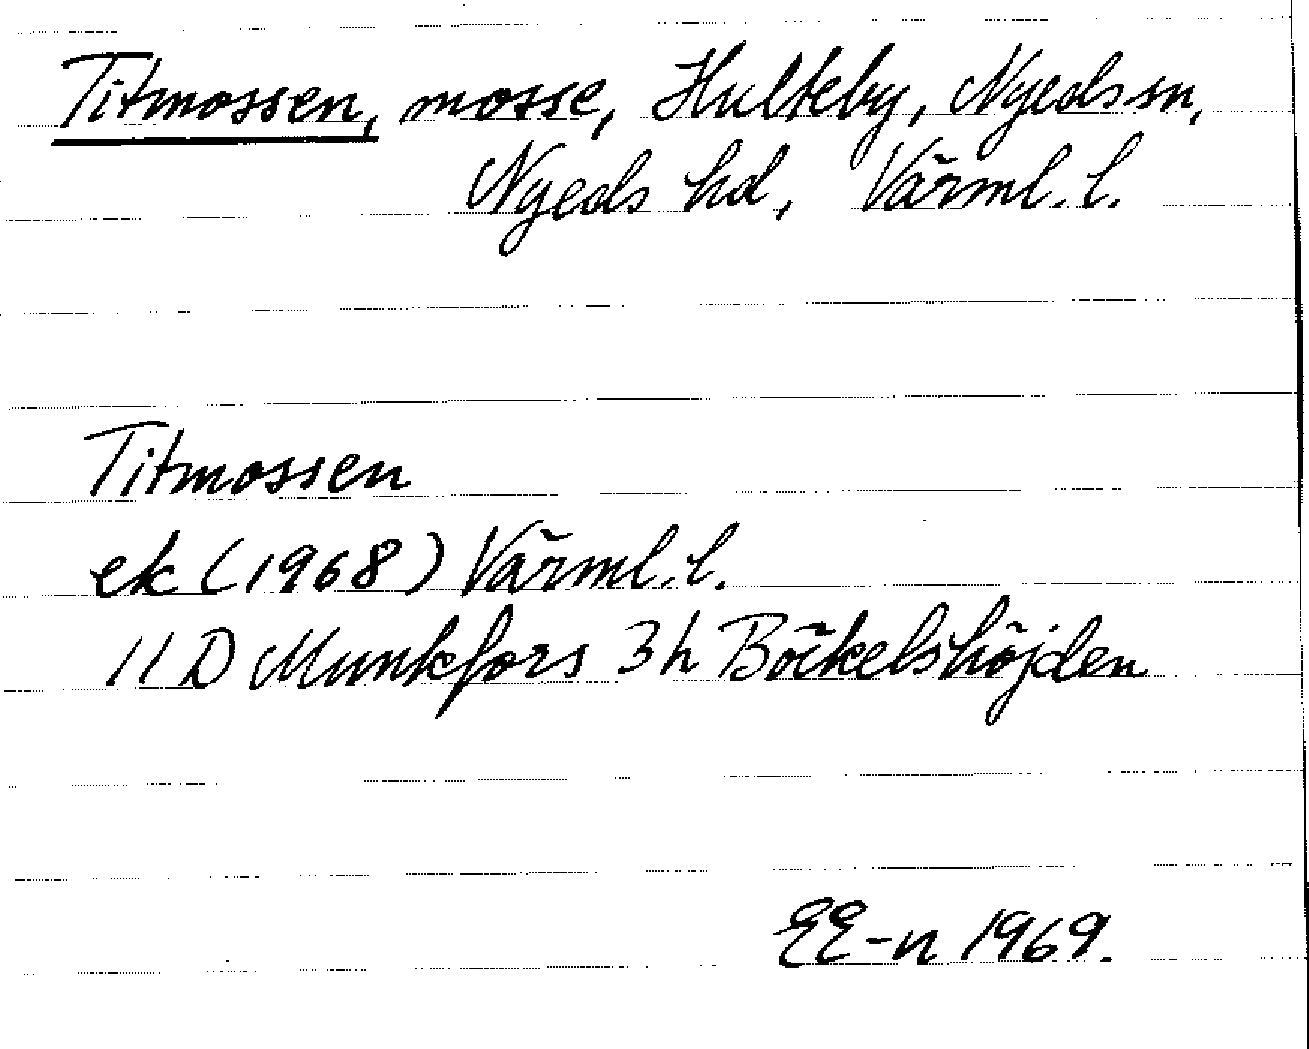 Titmossen, mosse, Hulteby, Nyeds sn,
Nyeds hd, Värml. l.
Titmossen
ek (1968) Värml. l.
11 D Munkfors 3 h Böckelshöjden
EE-n 1969.